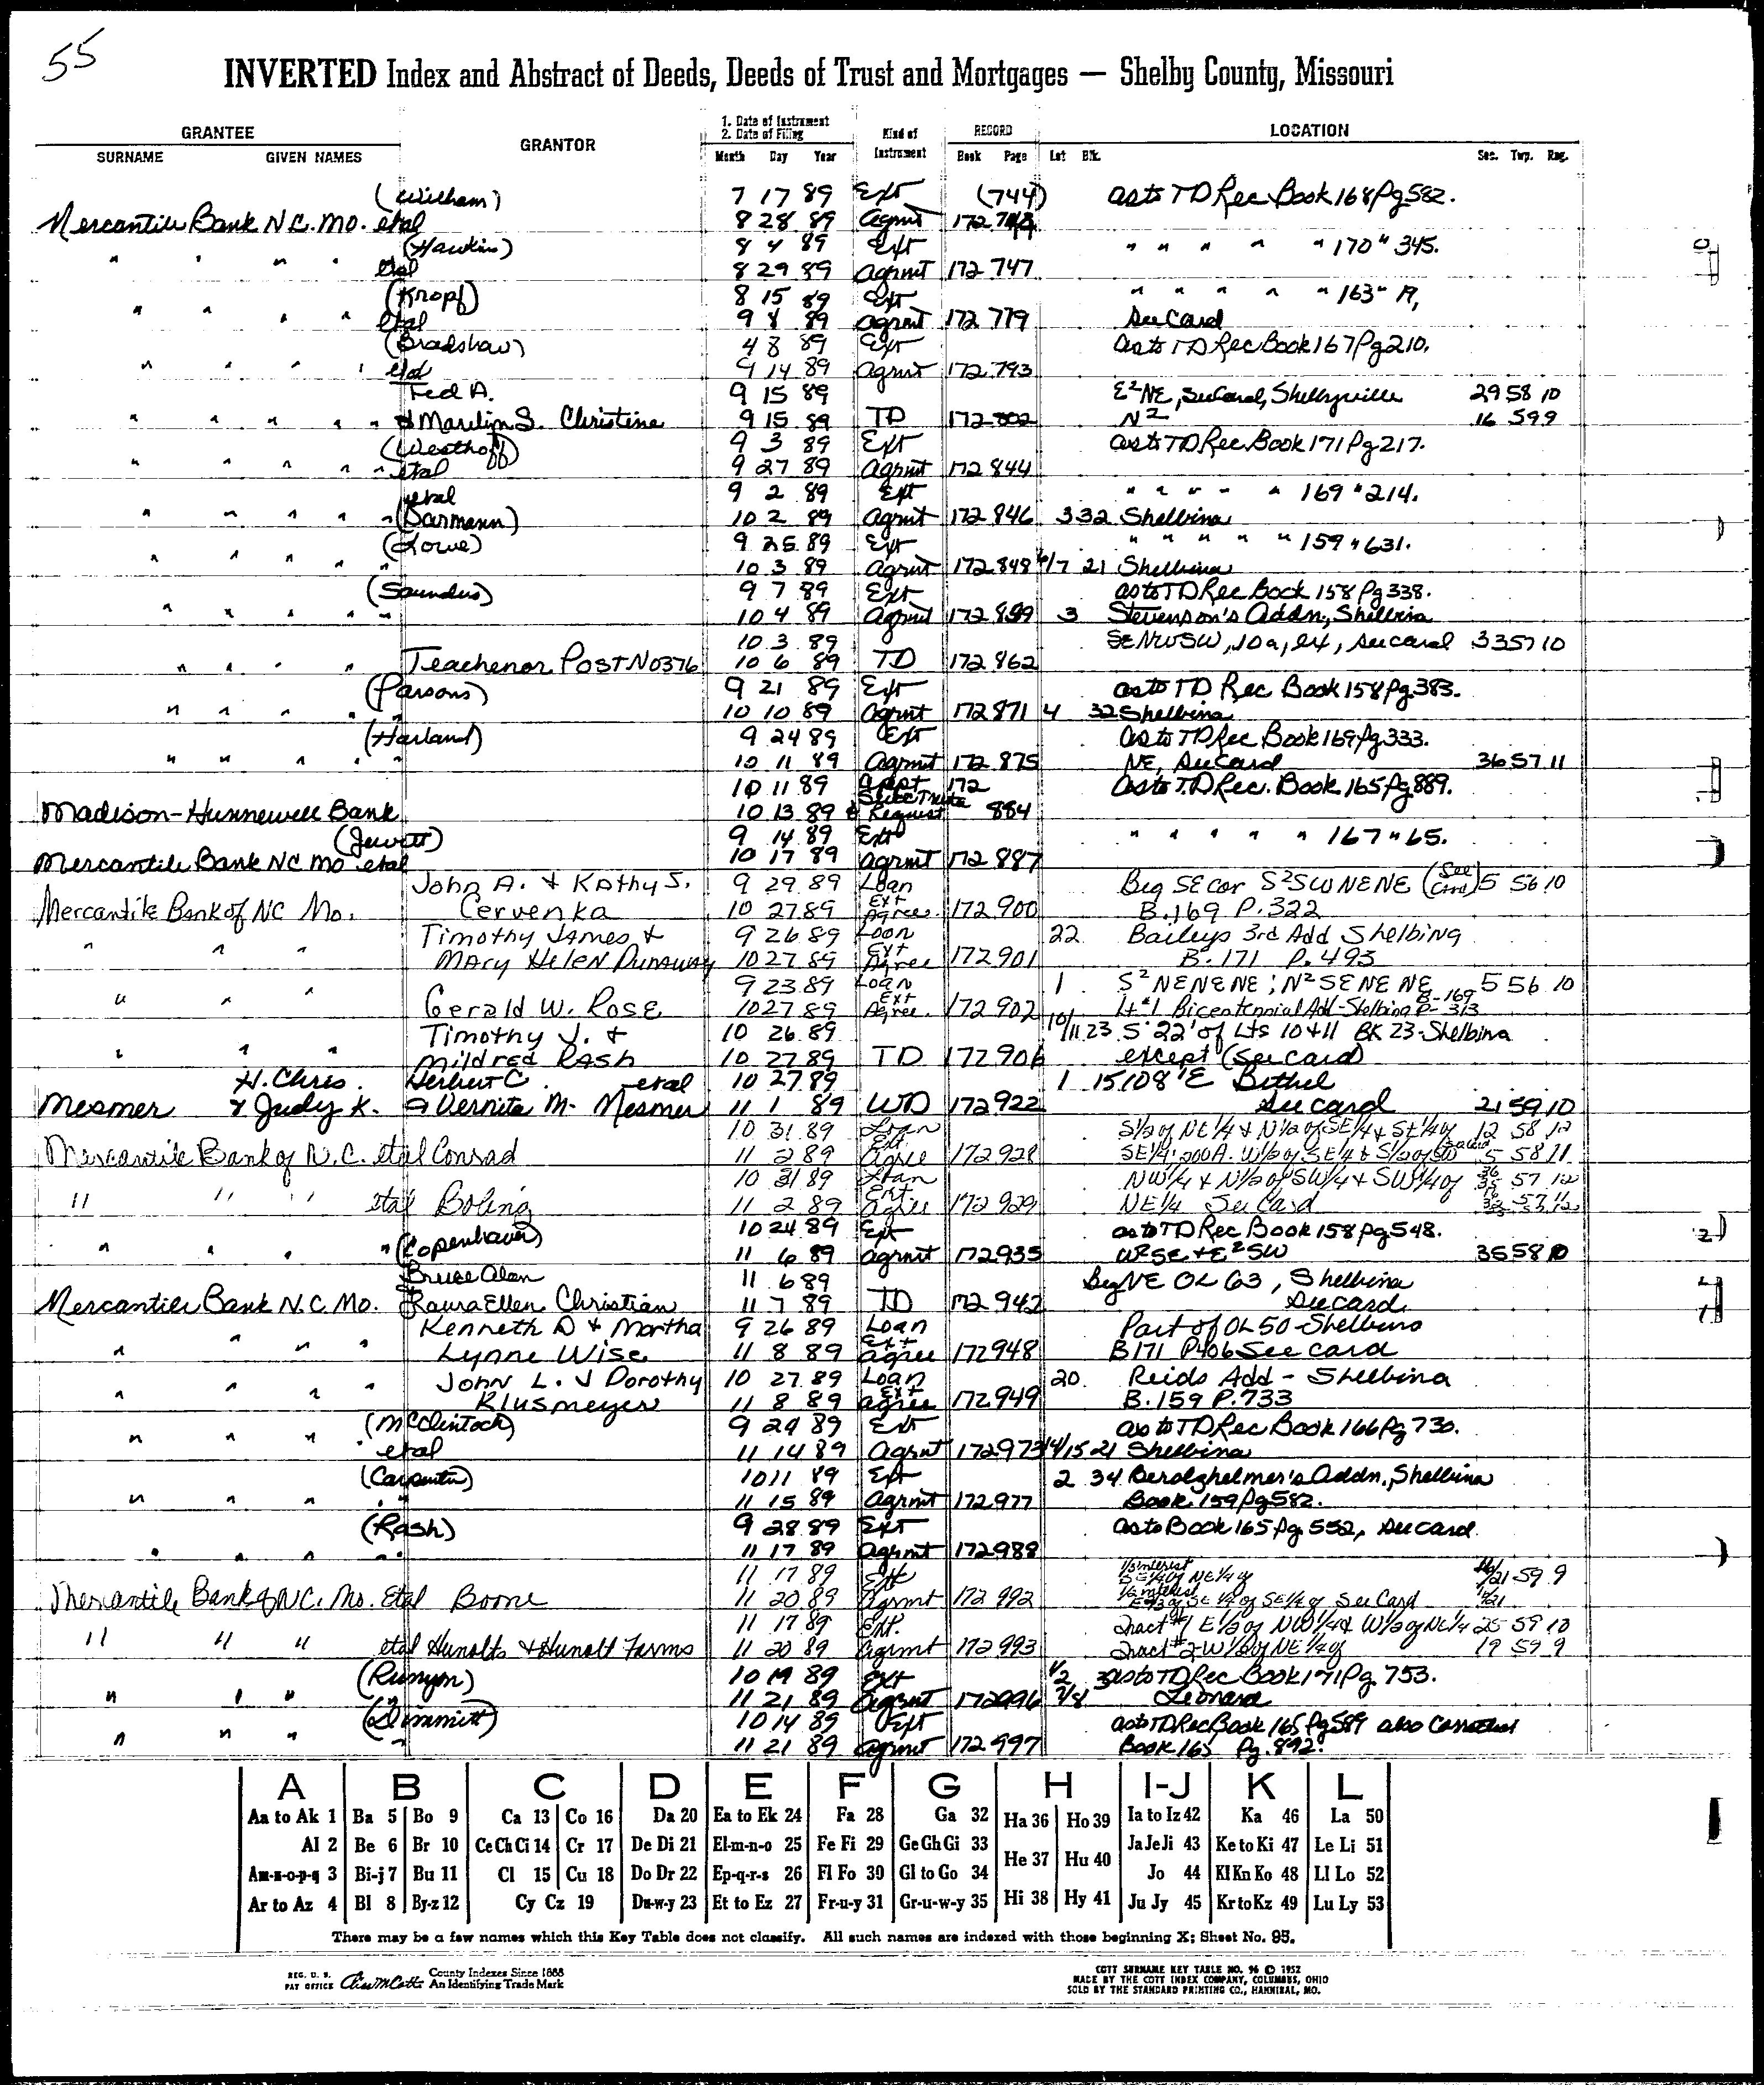 55
INVERTED Index and Abstract of Deeds, Deeds of Trust and Mortgages — Shelby County, Missouri
GRANTEE GRANTOR 1. Date of Instrument 2. Date of Filing Kind of Instrument RECORD LOCATION
SURNAME GIVEN NAMES Month Day Year Book Page Lot Blk. Sec. Twp. Rng.
(Wilham) 7 17 89 Ext (744) as to TD Rec Book 168 Pg 582.
Mercantile Bank NC. MO. etal 8 28 89 Agmt 172
(Hawkins) 8 4 89 Ext " " " " " 170 " 345.
" " " " etal 8 29 89 Agmt 172 747
(Kropf) 8 15 89 Ext " " " " " 163 " 19,
" " " " etal 9 8 89 Agmt 172 779 See Card
(Bradshaw) 4 8 89 Ext as to TD Rec Book 167 Pg 210.
" " " " etal 9 14 89 Agmt 172 793
Ted A. 9 15 89 E²NE, See Card, Shelbyville 29 58 10
" " " " " & Marilyn S. Christine 9 15 89 TD 172 802 N² 16 59 9
(Westhoff) 9 3 89 Ext as to TD Rec Book 171 Pg 217.
" " " " " etal 9 27 89 Agmt 172 844
etal 9 2 89 Ext " " " " " 169 " 214.
" " " " " (Darmann) 10 2 89 Agmt 172 846 3 32 Shelbina
(Lowe) 9 25 89 Ext " " " " " 159 " 631.
" " " " " 10 3 89 Agmt 172 848 6/7 21 Shelbina
(Saunders) 9 7 89 Ext as to TD Rec Book 158 Pg 338.
" " " " " 10 4 89 Agmt 172 859 3 Stevenson's Addn, Shelbina
10 3 89 SENWSW, 10a, ex, See card 33 57 10
" " " " Teachenor Post No 376 10 6 89 TD 172 862
(Parsons) 9 21 89 Ext as to TD Rec Book 158 Pg 383.
" " " " " 10 10 89 Agmt 172 871 4 32 Shelbina
(Harland) 9 24 89 Ext as to TD Rec Book 169 Pg 333.
" " " " " 10 11 89 Agmt 172 875 NE, See Card 36 57 11
10 11 89 Appt 172 as to T.D Rec. Book 165 Pg 889.
Madison-Hunnewell Bank 10 13 89 & Request 884
(Jewett) 9 14 89 Ext " " " " " 167 " 65.
Mercantile Bank NC MO etal 10 17 89 Agrmt 172 887
John A. & Kathy S. 9 29 89 Loan Beg SE cor S²SWNENE (See Card) 5 56 10
Mercantile Bank of NC Mo. Cervenka 10 27 89 Ext Agree. 172 900 B.169 P.322
Timothy James & 9 26 89 Loan 22 Baileys 3rd Add Shelbina
" " " Mary Helen Dunaway 10 27 89 Ext Agree 172 901 B.171 P.493
9 23 89 Loan 1 S²NENENE; N²SENENE 5 56 10
" " " Gerald W. Rose 10 27 89 Ext Agree. 172 902 Lt #1 Bicentennial Add-Shelbina B-169 P-313
Timothy J. & 10 26 89 10/11 23 S 22' of Lts 10 & 11 BK 23-Shelbina
" " " Mildred Rash 10 27 89 TD 172 906 except (See card)
H. Chris. Herbert C. etal 10 27 89 1 15 108' E Bethel
Mesmer & Judy K. & Vernita M. Mesmer 11 1 89 WD 172 922 See card 21 59 10
10 31 89 Loan S1/2 of NE1/4 & N1/2 of SE1/4 & SE1/4 of 12 58 12
Mercantile Bank of N.C. etal Conrad 11 2 89 Ext. Agree 172 928 SE1/4: 200A. W1/2 of SE1/4 & S1/2 of SW See Card 5 58 11
10 31 89 Loan NW1/4 & N1/2 of SW1/4 & SW1/4 of 57 12
" " " etal Boling 11 2 89 Ext. Agree 172 929 NE1/4 See Card
10 24 89 Ext as to TD Rec Book 158 Pg 548.
" " " " " (Copenhaver) 11 6 89 Agrmt 172 935 W²SE & E²SW 35 58 10
Bruce Alan 11 6 89 Beg NE OL 63, Shelbina
Mercantile Bank N.C. Mo. & Laura Ellen Christian 11 7 89 TD 172 942 See card.
Kenneth D & Martha 9 26 89 Loan Part of OL 50-Shelbina
" " " " Lynne Wise 11 8 89 Ext agree 172 948 B171 P406 See card
John L. & Dorothy 10 27 89 Loan 20 Reids Add - Shelbina
" " " " Klusmeyer 11 8 89 Ext agree 172 949 B.159 P.733
(McClintock) 9 29 89 Ext as to TD Rec Book 166 Pg 730.
" " " " etal 11 14 89 Agmt 172 973 14/15 21 Shelbina
(Carpenter) 10 11 89 Ext 2 34 Berolzheimer's Addn., Shelbina
" " " " 11 15 89 Agrmt 172 977 Book 159 Pg 582.
(Rash) 9 28 89 Ext as to Book 165 Pg. 552, See card.
" " " " 11 17 89 Agrmt 172 988
11 17 89 Ext 1/2 interest SE1/4 of NE1/4 of 16/21 59 9
Mercantile Bank of N.C. Mo. Etal Boone 11 20 89 Agrmt 172 992 1/2 interest SE1/4 of SE1/4 of See Card
11 17 89 Ext. Tract #1 E1/2 of NW1/4 & W1/2 of NE1/4 25 59 10
" " " etal Hunolts & Hunolt Farms 11 20 89 Agrmt 172 993 Tract #2-W1/2 of NE1/4 of 19 59 9
(Runyon) 10 19 89 Ext 1/2 3 as to TD Rec Book 171 Pg. 753.
" " " 11 21 89 Agrmt 172 996 7/8 Leonard
(Dimmitt) 10 14 89 Ext as to TD Rec Book 165 Pg 589 also Corrected
" " " " 11 21 89 Agrmt 172 997 Book 165 Pg. 892.
A B C D E F G H I-J K L
Aa to Ak 1 Ba 5 Bo 9 Ca 13 Co 16 Da 20 Ea to Ek 24 Fa 28 Ga 32 Ha 36 Ho 39 Ia to Iz 42 Ka 46 La 50
Al 2 Be 6 Br 10 Ce Ch Ci 14 Cr 17 De Di 21 El-m-n-o 25 Fe Fi 29 Ge Gh Gi 33 He 37 Hu 40 Ja Je Ji 43 Ke to Ki 47 Le Li 51
Am-n-o-p-q 3 Bi-j 7 Bu 11 Cl 15 Cu 18 Do Dr 22 Ep-q-r-s 26 Fl Fo 30 Gl to Go 34 Jo 44 Kl Kn Ko 48 Ll Lo 52
Ar to Az 4 Bl 8 By-z 12 Cy Cz 19 Du-w-y 23 Et to Ez 27 Fr-u-y 31 Gr-u-w-y 35 Hi 38 Hy 41 Ju Jy 45 Kr to Kz 49 Lu Ly 53
There may be a few names which this Key Table does not classify. All such names are indexed with those beginning X; Sheet No. 95.
REG. U. S. PAT OFFICE County Indexes Since 1888 An Identifying Trade Mark
COTT SURNAME KEY TABLE NO. 96 © 1952
MADE BY THE COTT INDEX COMPANY, COLUMBUS, OHIO
SOLD BY THE STANDARD PRINTING CO., HANNIBAL, MO.